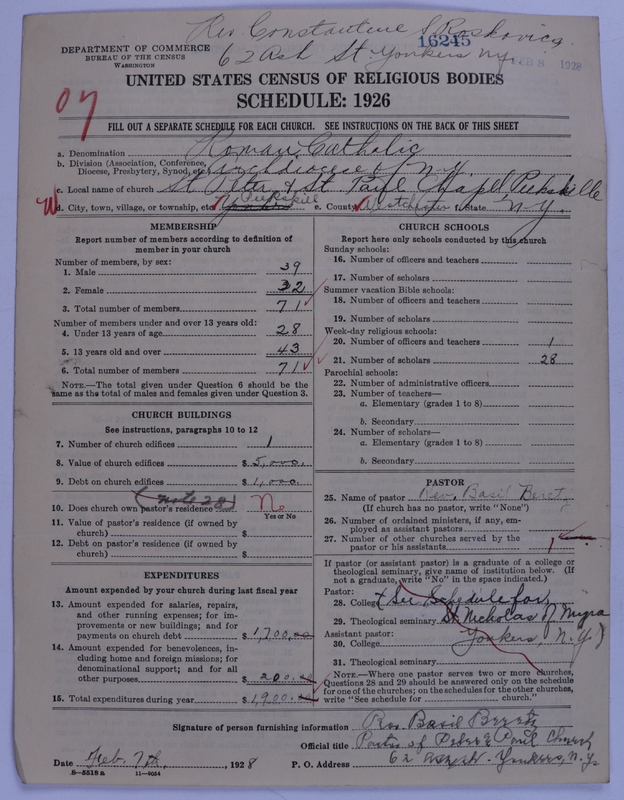 Rev Constantine S Roskovics.
16245
62 Ash St. Yonkers N.Y.
FEB 8 1928
DEPARTMENT OF COMMERCE
BUREAU OF THE CENSUS
WASHINGTON
UNITED STATES CENSUS OF RELIGIOUS BODIES
SCHEDULE: 1926
07
FILL OUT A SEPARATE SCHEDULE FOR EACH CHURCH. SEE INSTRUCTIONS ON THE BACK OF THIS SHEET
a. Denomination Roman Catholic
b. Division (Association, Conference, Diocese, Presbytery, Synod, etc.) Archdiocese of N.Y.
c. Local name of church St. Peter & St. Paul Chapel Peekskille
d. City, town, village, or township, etc. Yonkers Peekskill e. County Westchester f. State N-Y.
MEMBERSHIP
Report number of members according to definition of
member in your church
Number of members, by sex:
1. Male 39
2. Female 32
3. Total number of members 71
Number of members under and over 13 years old:
4. Under 13 years of age 28
5. 13 years old and over 43
6. Total number of members 71
NOTE.—The total given under Question 6 should be the
same as the total of males and females given under Question 3.
CHURCH BUILDINGS
See instructions, paragraphs 10 to 12
7. Number of church edifices 1
8. Value of church edifices $ 5,000.
9. Debt on church edifices $ 1,000.
(note 28)
10. Does church own pastor's residence No
Yes or No
11. Value of pastor's residence (if owned by
church) $
12. Debt on pastor's residence (if owned by
church) $
EXPENDITURES
Amount expended by your church during last fiscal year
13. Amount expended for salaries, repairs,
and other running expenses; for im-
provements or new buildings; and for
payments on church debt $ 1,700.00
14. Amount expended for benevolences, in-
cluding home and foreign missions; for
denominational support; and for all
other purposes $ 200.00
15. Total expenditures during year $ 1,900.00
CHURCH SCHOOLS
Report here only schools conducted by this church
Sunday schools:
16. Number of officers and teachers
17. Number of scholars
Summer vacation Bible schools:
18. Number of officers and teachers
19. Number of scholars
Week-day religious schools:
20. Number of officers and teachers 1
21. Number of scholars 28
Parochial schools:
22. Number of administrative officers
23. Number of teachers—
a. Elementary (grades 1 to 8)
b. Secondary
24. Number of scholars—
a. Elementary (grades 1 to 8)
b. Secondary
PASTOR
25. Name of pastor Rev. Basil Beret
(If church has no pastor, write "None")
26. Number of ordained ministers, if any, em-
ployed as assistant pastors
27. Number of other churches served by the
pastor or his assistants 1
If pastor (or assistant pastor) is a graduate of a college or
theological seminary, give name of institution below. (If
not a graduate, write "No" in the space indicated.)
Pastor:
28. College + See Schedule for
29. Theological seminary St. Nicholas of Myra
Assistant pastor:
30. College Yonkers, N.Y.)
31. Theological seminary
NOTE.—Where one pastor serves two or more churches,
Questions 28 and 29 should be answered only on the schedule
for one of the churches; on the schedules for the other churches,
write "See schedule for church."
Signature of person furnishing information Rev. Basil Beretz
Official title Pastor of Peter & Paul Church
Date Feb. 7th, 1928 P. O. Address 62 Ash St. Yonkers, N.Y.
8—5518a 11—9054